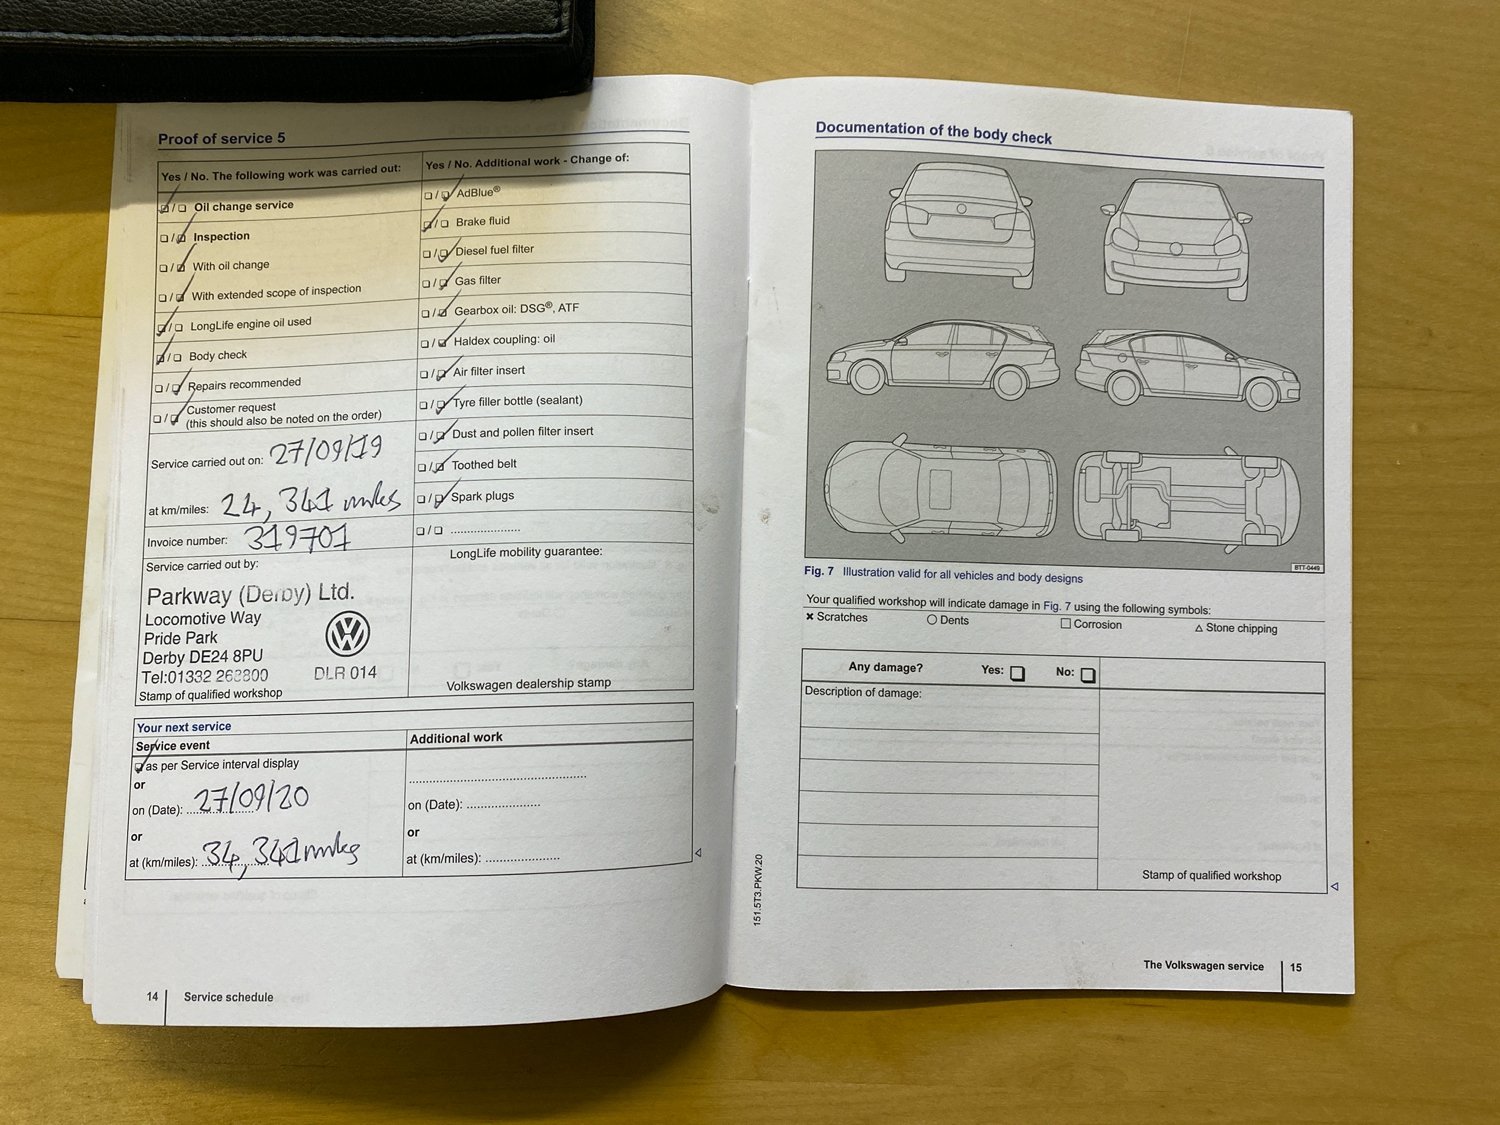 Proof of service 5
Yes / No. The following work was carried out:
❏ / ❏ Oil change service
❏ / ❏ Inspection
❏ / ❏ With oil change
❏ / ❏ With extended scope of inspection
❏ / ❏ LongLife engine oil used
❏ / ❏ Body check
❏ / ❏ Repairs recommended
❏ / ❏ Customer request
(this should also be noted on the order)
Service carried out on: 27/09/19
at km/miles: 24,341 miles
Invoice number: 319701
Service carried out by:
Parkway (Derby) Ltd.
Locomotive Way
Pride Park
Derby DE24 8PU
Tel:01332 268800
DLR 014
Stamp of qualified workshop
Yes / No. Additional work - Change of:
❏ / ❏ AdBlue®
❏ / ❏ Brake fluid
❏ / ❏ Diesel fuel filter
❏ / ❏ Gas filter
❏ / ❏ Gearbox oil: DSG®, ATF
❏ / ❏ Haldex coupling: oil
❏ / ❏ Air filter insert
❏ / ❏ Tyre filler bottle (sealant)
❏ / ❏ Dust and pollen filter insert
❏ / ❏ Toothed belt
❏ / ❏ Spark plugs
❏ / ❏ ......................
LongLife mobility guarantee:
Volkswagen dealership stamp
Your next service
Service event
❏ as per Service interval display
or
on (Date): 27/09/20
or
at (km/miles): 34,341 miles
Additional work
......................................................
on (Date): ......................
or
at (km/miles): ......................
14 Service schedule
Documentation of the body check
BTT-0449
Fig. 7 Illustration valid for all vehicles and body designs
Your qualified workshop will indicate damage in Fig. 7 using the following symbols:
✖ Scratches ○ Dents □ Corrosion △ Stone chipping
Any damage? Yes: ❏ No: ❏
Description of damage:
Stamp of qualified workshop
151.5T3.PKW.20
The Volkswagen service 15